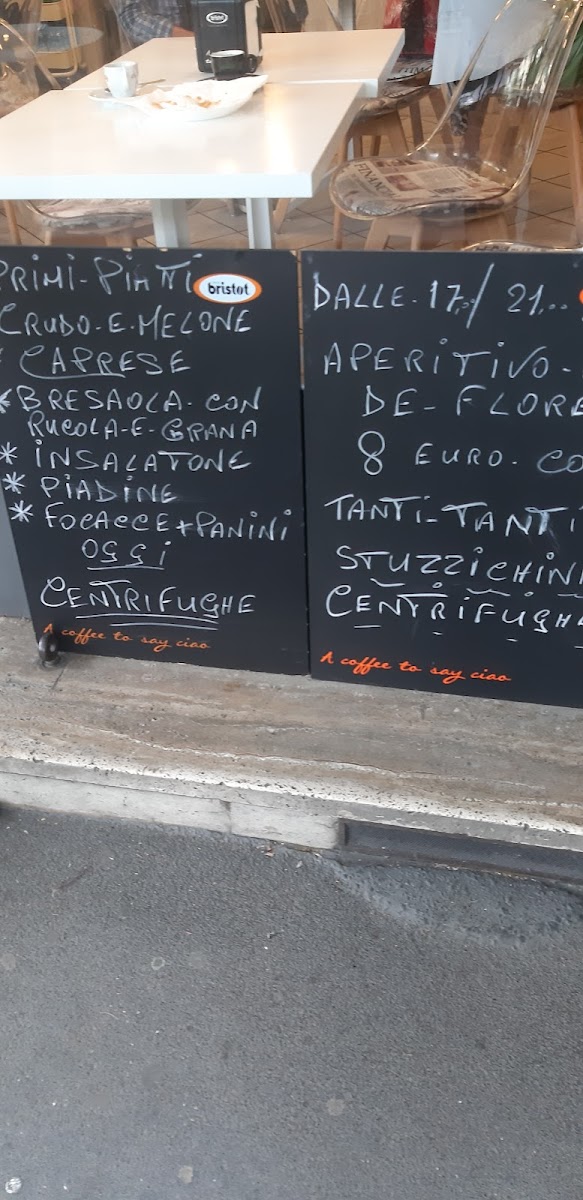 PRIMI-PIATTI
bristot
CRUDO-E-MELONE
* CAPRESE
* BRESAOLA-CON
RUCOLA-E-GRANA
* INSALATONE
* PIADINE
* FOCACCE+PANINI
OGGI
CENTRIFUGHE
A coffee to say ciao
DALLE-17,../21,..
APERITIVO-
DE-FLORE
8 EURO-CO
TANTI-TANTI
STUZZICHINI
CENTRIFUGH
A coffee to say ciao
bristot